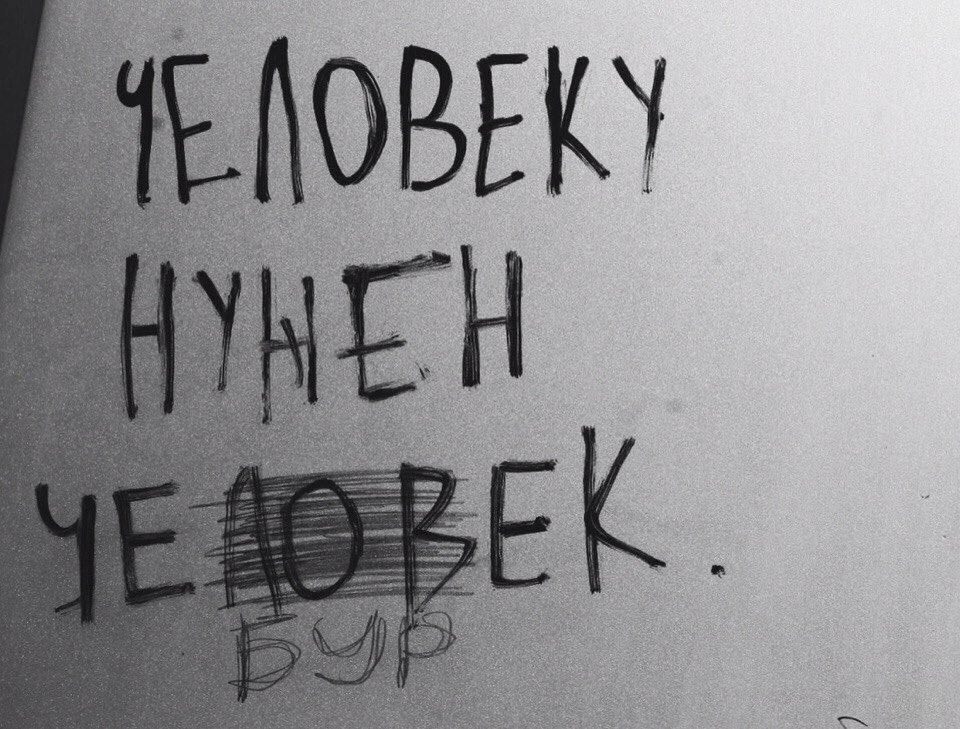 ЧЕЛОВЕКУ
НУЖЕН
ЧЕЛОВЕК.
БУР